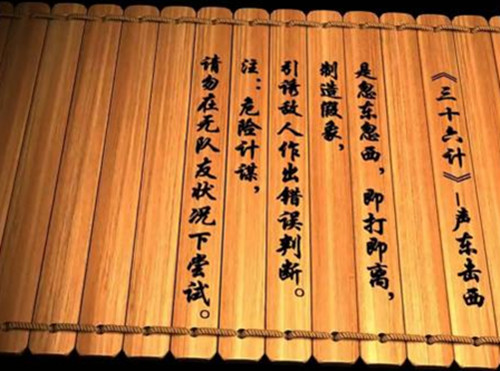 《三十六计》-声东击西
是忽东忽西，即打即离，
制造假象，
引诱敌人作出错误判断。
注：危险计谋，
请勿在无队友状况下尝试。